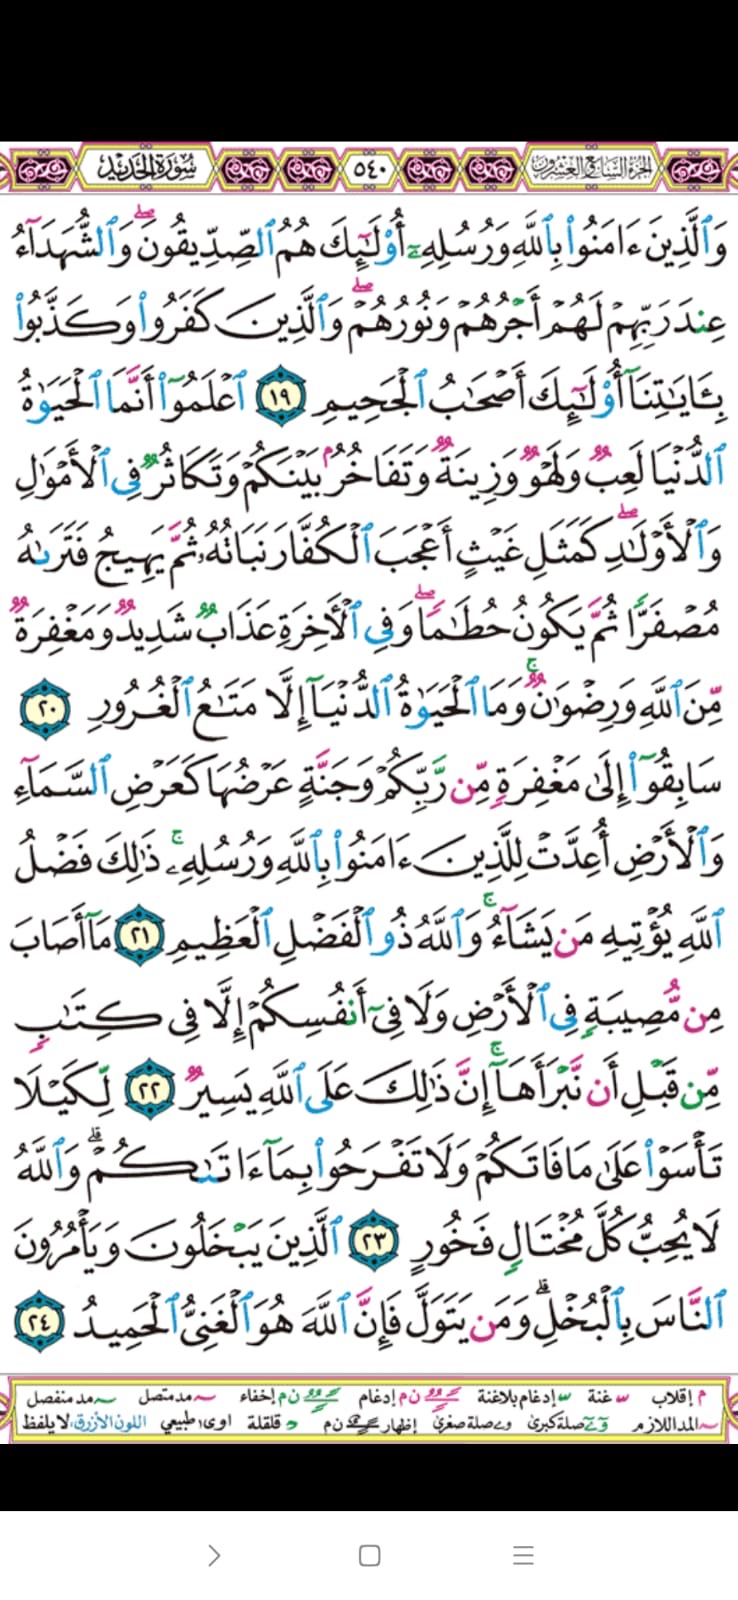 الجزء السابع والعشرون ٥٤٠ سورة الحديد
وَٱلَّذِينَ ءَامَنُوا۟ بِٱللَّهِ وَرُسُلِهِۦٓ أُو۟لَـٰٓئِكَ هُمُ ٱلصِّدِّيقُونَ ۖ وَٱلشُّهَدَآءُ
عِندَ رَبِّهِمْ لَهُمْ أَجْرُهُمْ وَنُورُهُمْ ۖ وَٱلَّذِينَ كَفَرُوا۟ وَكَذَّبُوا۟
بِـَٔايَـٰتِنَآ أُو۟لَـٰٓئِكَ أَصْحَـٰبُ ٱلْجَحِيمِ ١٩ ٱعْلَمُوٓا۟ أَنَّمَا ٱلْحَيَوٰةُ
ٱلدُّنْيَا لَعِبٌ وَلَهْوٌ وَزِينَةٌ وَتَفَاخُرٌۢ بَيْنَكُمْ وَتَكَاثُرٌ فِى ٱلْأَمْوَٰلِ
وَٱلْأَوْلَـٰدِ ۖ كَمَثَلِ غَيْثٍ أَعْجَبَ ٱلْكُفَّارَ نَبَاتُهُۥ ثُمَّ يَهِيجُ فَتَرَىٰهُ
مُصْفَرًّا ثُمَّ يَكُونُ حُطَـٰمًا ۖ وَفِى ٱلْـَٔاخِرَةِ عَذَابٌ شَدِيدٌ وَمَغْفِرَةٌ
مِّنَ ٱللَّهِ وَرِضْوَٰنٌ ۚ وَمَا ٱلْحَيَوٰةُ ٱلدُّنْيَآ إِلَّا مَتَـٰعُ ٱلْغُرُورِ ٢٠
سَابِقُوٓا۟ إِلَىٰ مَغْفِرَةٍ مِّن رَّبِّكُمْ وَجَنَّةٍ عَرْضُهَا كَعَرْضِ ٱلسَّمَآءِ
وَٱلْأَرْضِ أُعِدَّتْ لِلَّذِينَ ءَامَنُوا۟ بِٱللَّهِ وَرُسُلِهِۦ ۚ ذَٰلِكَ فَضْلُ
ٱللَّهِ يُؤْتِيهِ مَن يَشَآءُ ۚ وَٱللَّهُ ذُو ٱلْفَضْلِ ٱلْعَظِيمِ ٢١ مَآ أَصَابَ
مِن مُّصِيبَةٍ فِى ٱلْأَرْضِ وَلَا فِىٓ أَنفُسِكُمْ إِلَّا فِى كِتَـٰبٍ
مِّن قَبْلِ أَن نَّبْرَأَهَآ ۚ إِنَّ ذَٰلِكَ عَلَى ٱللَّهِ يَسِيرٌ ٢٢ لِّكَيْلَا
تَأْسَوْا۟ عَلَىٰ مَا فَاتَكُمْ وَلَا تَفْرَحُوا۟ بِمَآ ءَاتَىٰكُمْ ۗ وَٱللَّهُ
لَا يُحِبُّ كُلَّ مُخْتَالٍ فَخُورٍ ٢٣ ٱلَّذِينَ يَبْخَلُونَ وَيَأْمُرُونَ
ٱلنَّاسَ بِٱلْبُخْلِ ۗ وَمَن يَتَوَلَّ فَإِنَّ ٱللَّهَ هُوَ ٱلْغَنِىُّ ٱلْحَمِيدُ ٢٤
م إقلاب غنة إدغام بلاغنة ن م إدغام ن م إخفاء مد متصل مد منفصل
المد اللازم صلة كبرى صلة صغرى إظهار ن م قلقلة اوى طبيعي اللون الأزرق، لا يلفظ